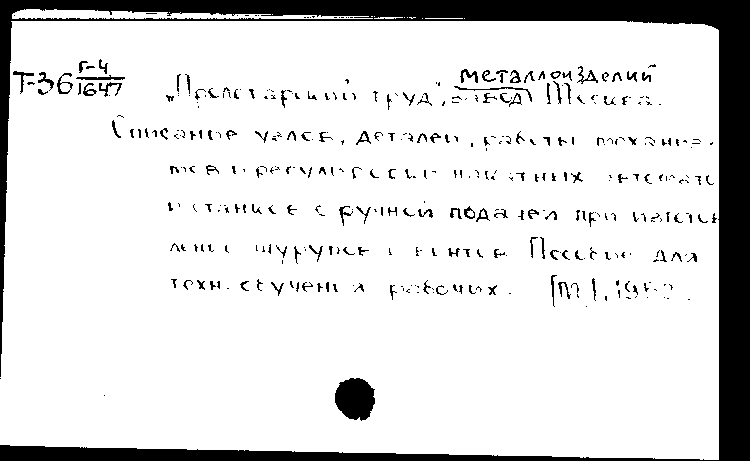 Т-36 Г-4/1647
металлоизделий
„Пролетарский труд", завод, Москва.
Описание узлов, деталей, работы механиз-
мов и регулировки накатных автоматов
и станков с ручной подачей при изготов-
лении шурупов и винтов. Пособие для
техн. обучения рабочих. [М.], 195